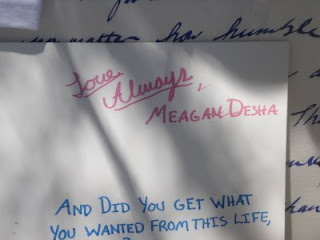 no matter how humble
Love
Always,
MEAGAN DESHA
AND DID YOU GET WHAT
YOU WANTED FROM THIS LIFE,